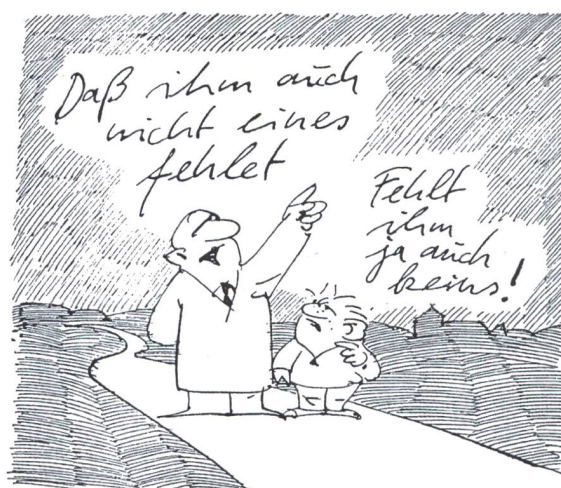 Daß ihm auch
nicht eines
fehlet
Fehlt
ihm
ja auch
keins!